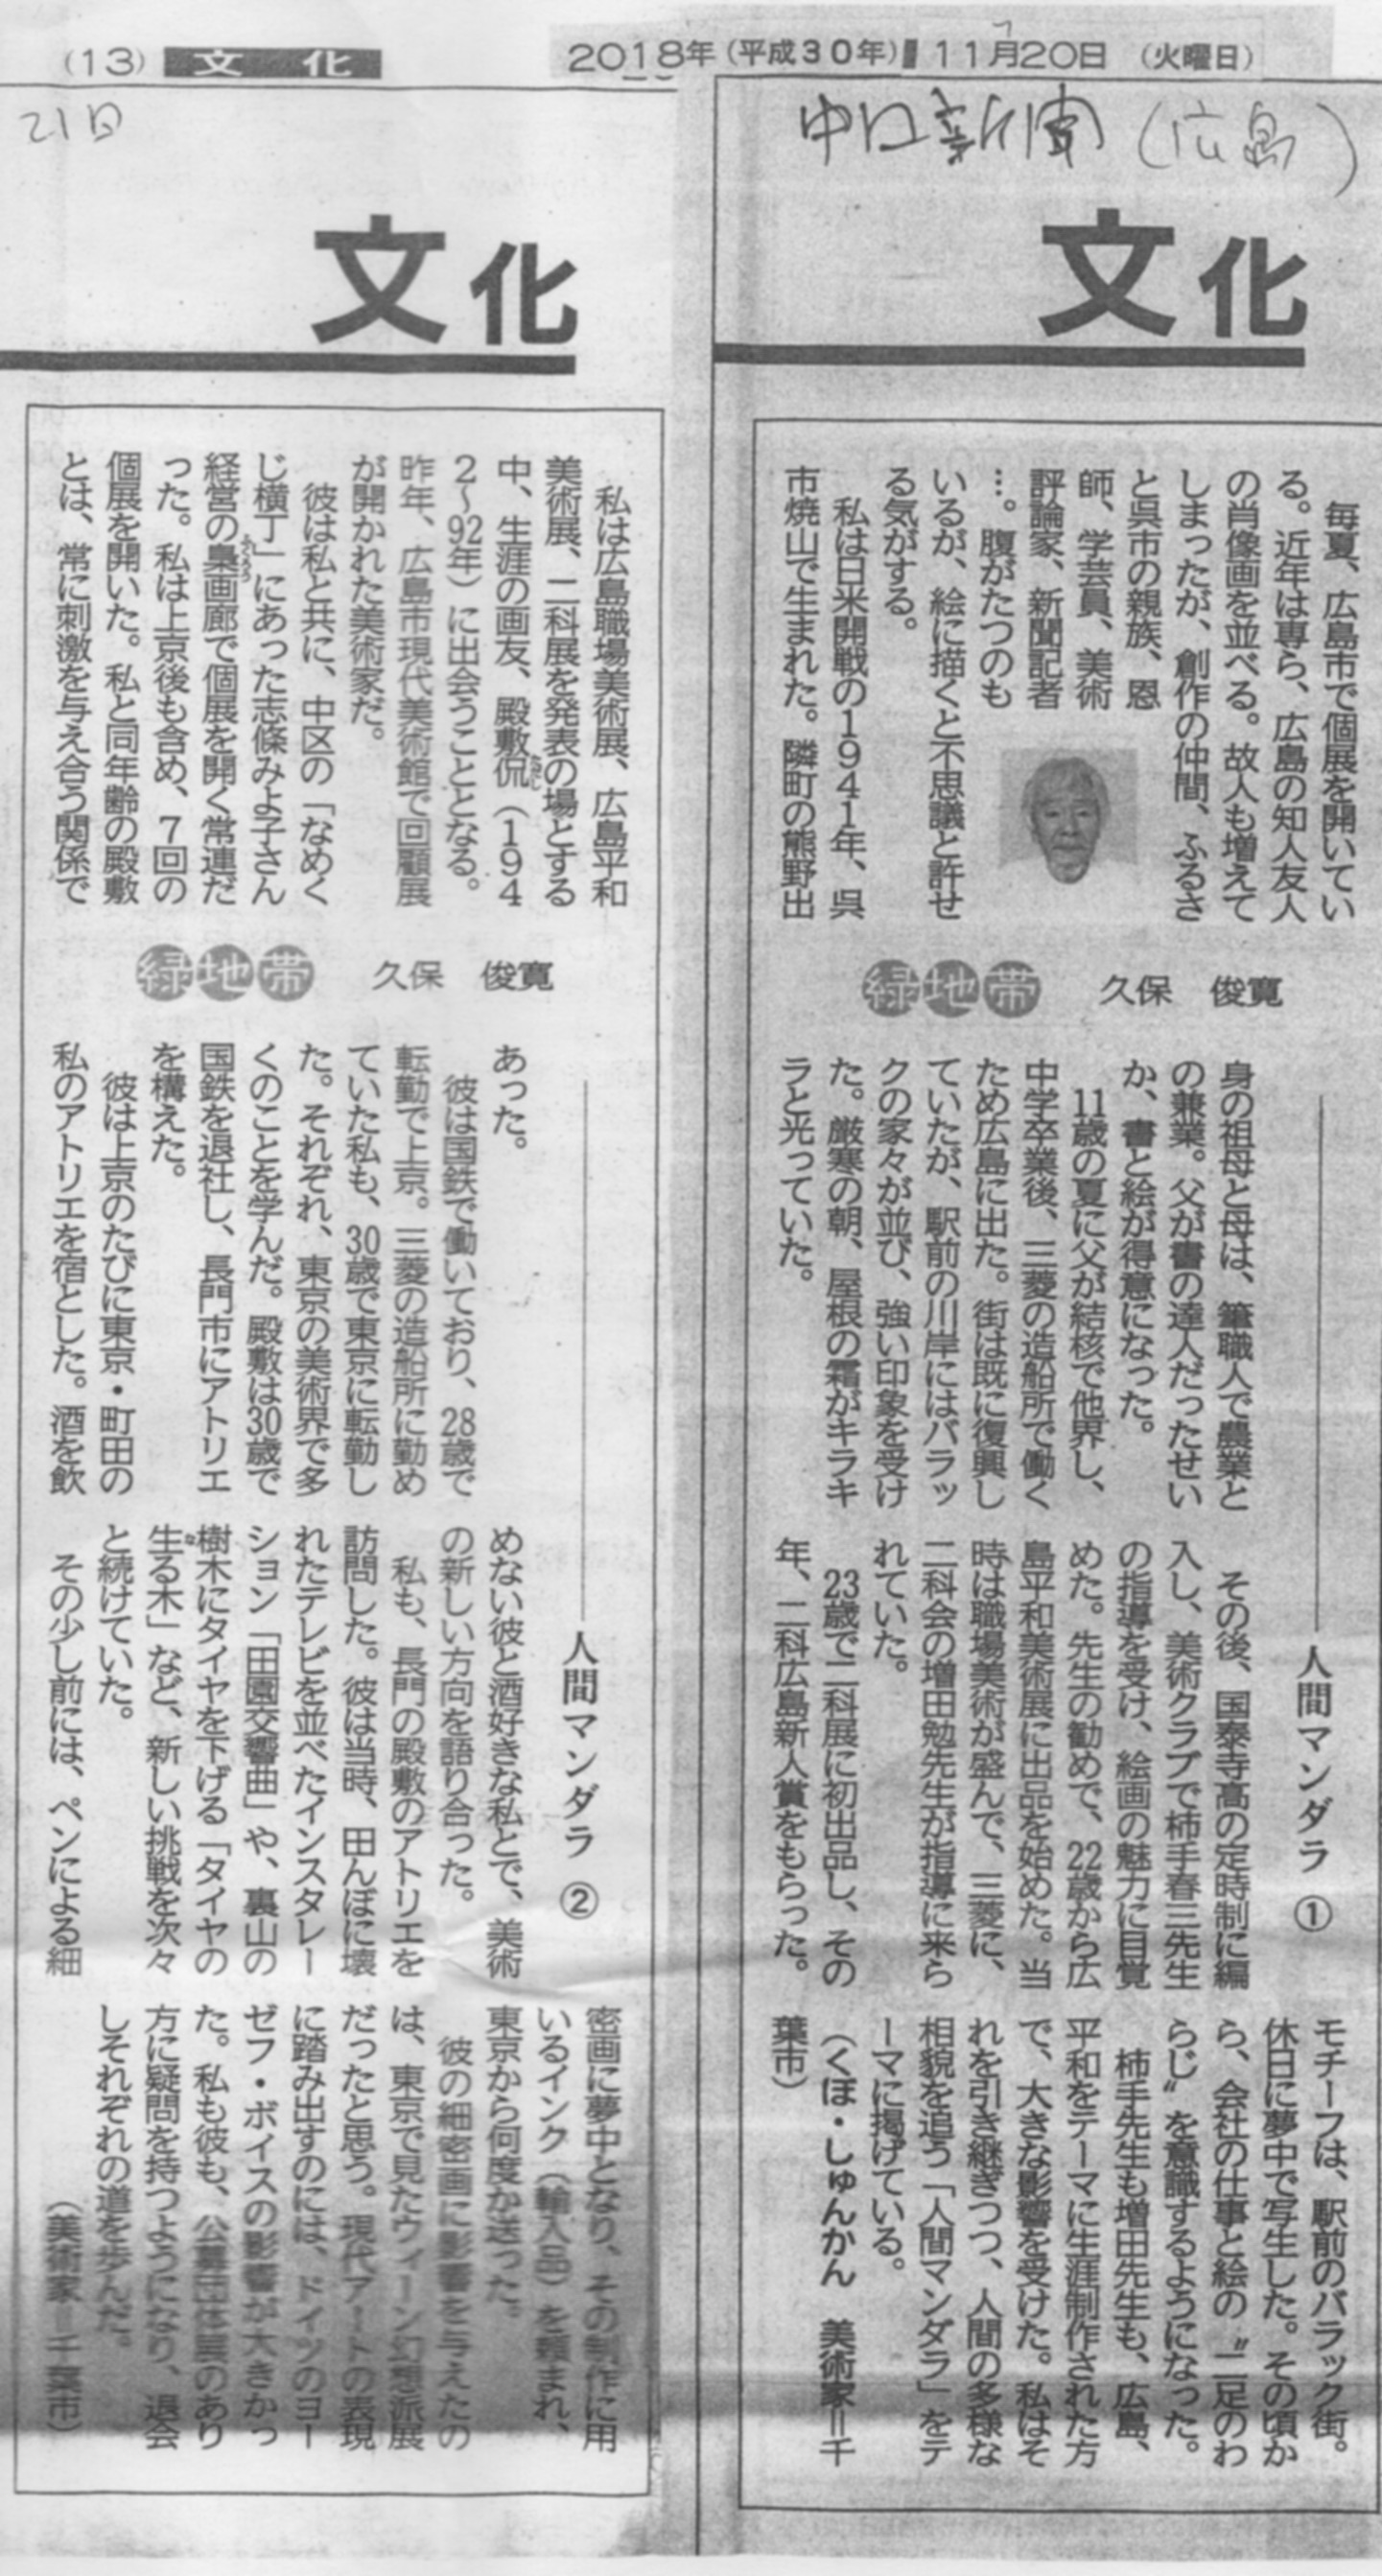 (13) 文化
2018年(平成30年) 11月20日 (火曜日)
中国新聞(広島)
文化
毎夏、広島市で個展を開いてい
る。近年は専ら、広島の知人友人
の肖像画を並べる。故人も増えて
しまったが、創作の仲間、ふるさ
と呉市の親族、恩
師、学芸員、美術
評論家、新聞記者
…。腹がたつのも
いるが、絵に描くと不思議と許せ
る気がする。
私は日米開戦の1941年、呉
市焼山で生まれた。隣町の熊野出
緑地帯 久保 俊寛
人間マンダラ ①
身の祖母と母は、筆職人で農業と
の兼業。父が書の達人だったせい
か、書と絵が得意になった。
11歳の夏に父が結核で他界し、
中学卒業後、三菱の造船所で働く
ため広島に出た。街は既に復興し
ていたが、駅前の川岸にはバラッ
クの家々が並び、強い印象を受け
た。厳寒の朝、屋根の霜がキラキ
ラと光っていた。
その後、国泰寺高の定時制に編
入し、美術クラブで柿手春三先生
の指導を受け、絵画の魅力に目覚
めた。先生の勧めで、22歳から広
島平和美術展に出品を始めた。当
時は職場美術が盛んで、三菱に、
二科会の増田勉先生が指導に来ら
れていた。
23歳で二科展に初出品し、その
年、二科広島新人賞をもらった。
モチーフは、駅前のバラック街。
休日に夢中で写生した。その頃か
ら、会社の仕事と絵の〝二足のわ
らじ〟を意識するようになった。
柿手先生も増田先生も、広島、
平和をテーマに生涯制作された方
で、大きな影響を受けた。私はそ
れを引き継ぎつつ、人間の多様な
相貌を追う「人間マンダラ」をテ
ーマに掲げている。
(くぼ・しゅんかん 美術家=千
葉市)
21日
文化
私は広島職場美術展、広島平和
美術展、二科展を発表の場とする
中、生涯の画友、殿敷侃(194
ただし
2〜92年)に出会うこととなる。
昨年、広島市現代美術館で回顧展
が開かれた美術家だ。
彼は私と共に、中区の「なめく
じ横丁」にあった志條みよ子さん
経営の梟画廊で個展を開く常連だ
ふくろう
った。私は上京後も含め、7回の
個展を開いた。私と同年齢の殿敷
とは、常に刺激を与え合う関係で
緑地帯 久保 俊寛
人間マンダラ ②
あった。
彼は国鉄で働いており、28歳で
転勤で上京。三菱の造船所に勤め
ていた私も、30歳で東京に転勤し
た。それぞれ、東京の美術界で多
くのことを学んだ。殿敷は30歳で
国鉄を退社し、長門市にアトリエ
を構えた。
彼は上京のたびに東京・町田の
私のアトリエを宿とした。酒を飲
めない彼と酒好きな私とで、美術
の新しい方向を語り合った。
私も、長門の殿敷のアトリエを
訪問した。彼は当時、田んぼに壊
れたテレビを並べたインスタレー
ション「田園交響曲」や、裏山の
樹木にタイヤを下げる「タイヤの
生る木」など、新しい挑戦を次々
な
と続けていた。
その少し前には、ペンによる細
密画に夢中となり、その制作に用
いるインク(輸入品)を頼まれ、
東京から何度か送った。
彼の細密画に影響を与えたの
は、東京で見たウィーン幻想派展
だったと思う。現代アートの表現
に踏み出すのには、ドイツのヨー
ゼフ・ボイスの影響が大きかっ
た。私も彼も、公募団体展のあり
方に疑問を持つようになり、退会
しそれぞれの道を歩んだ。
(美術家=千葉市)